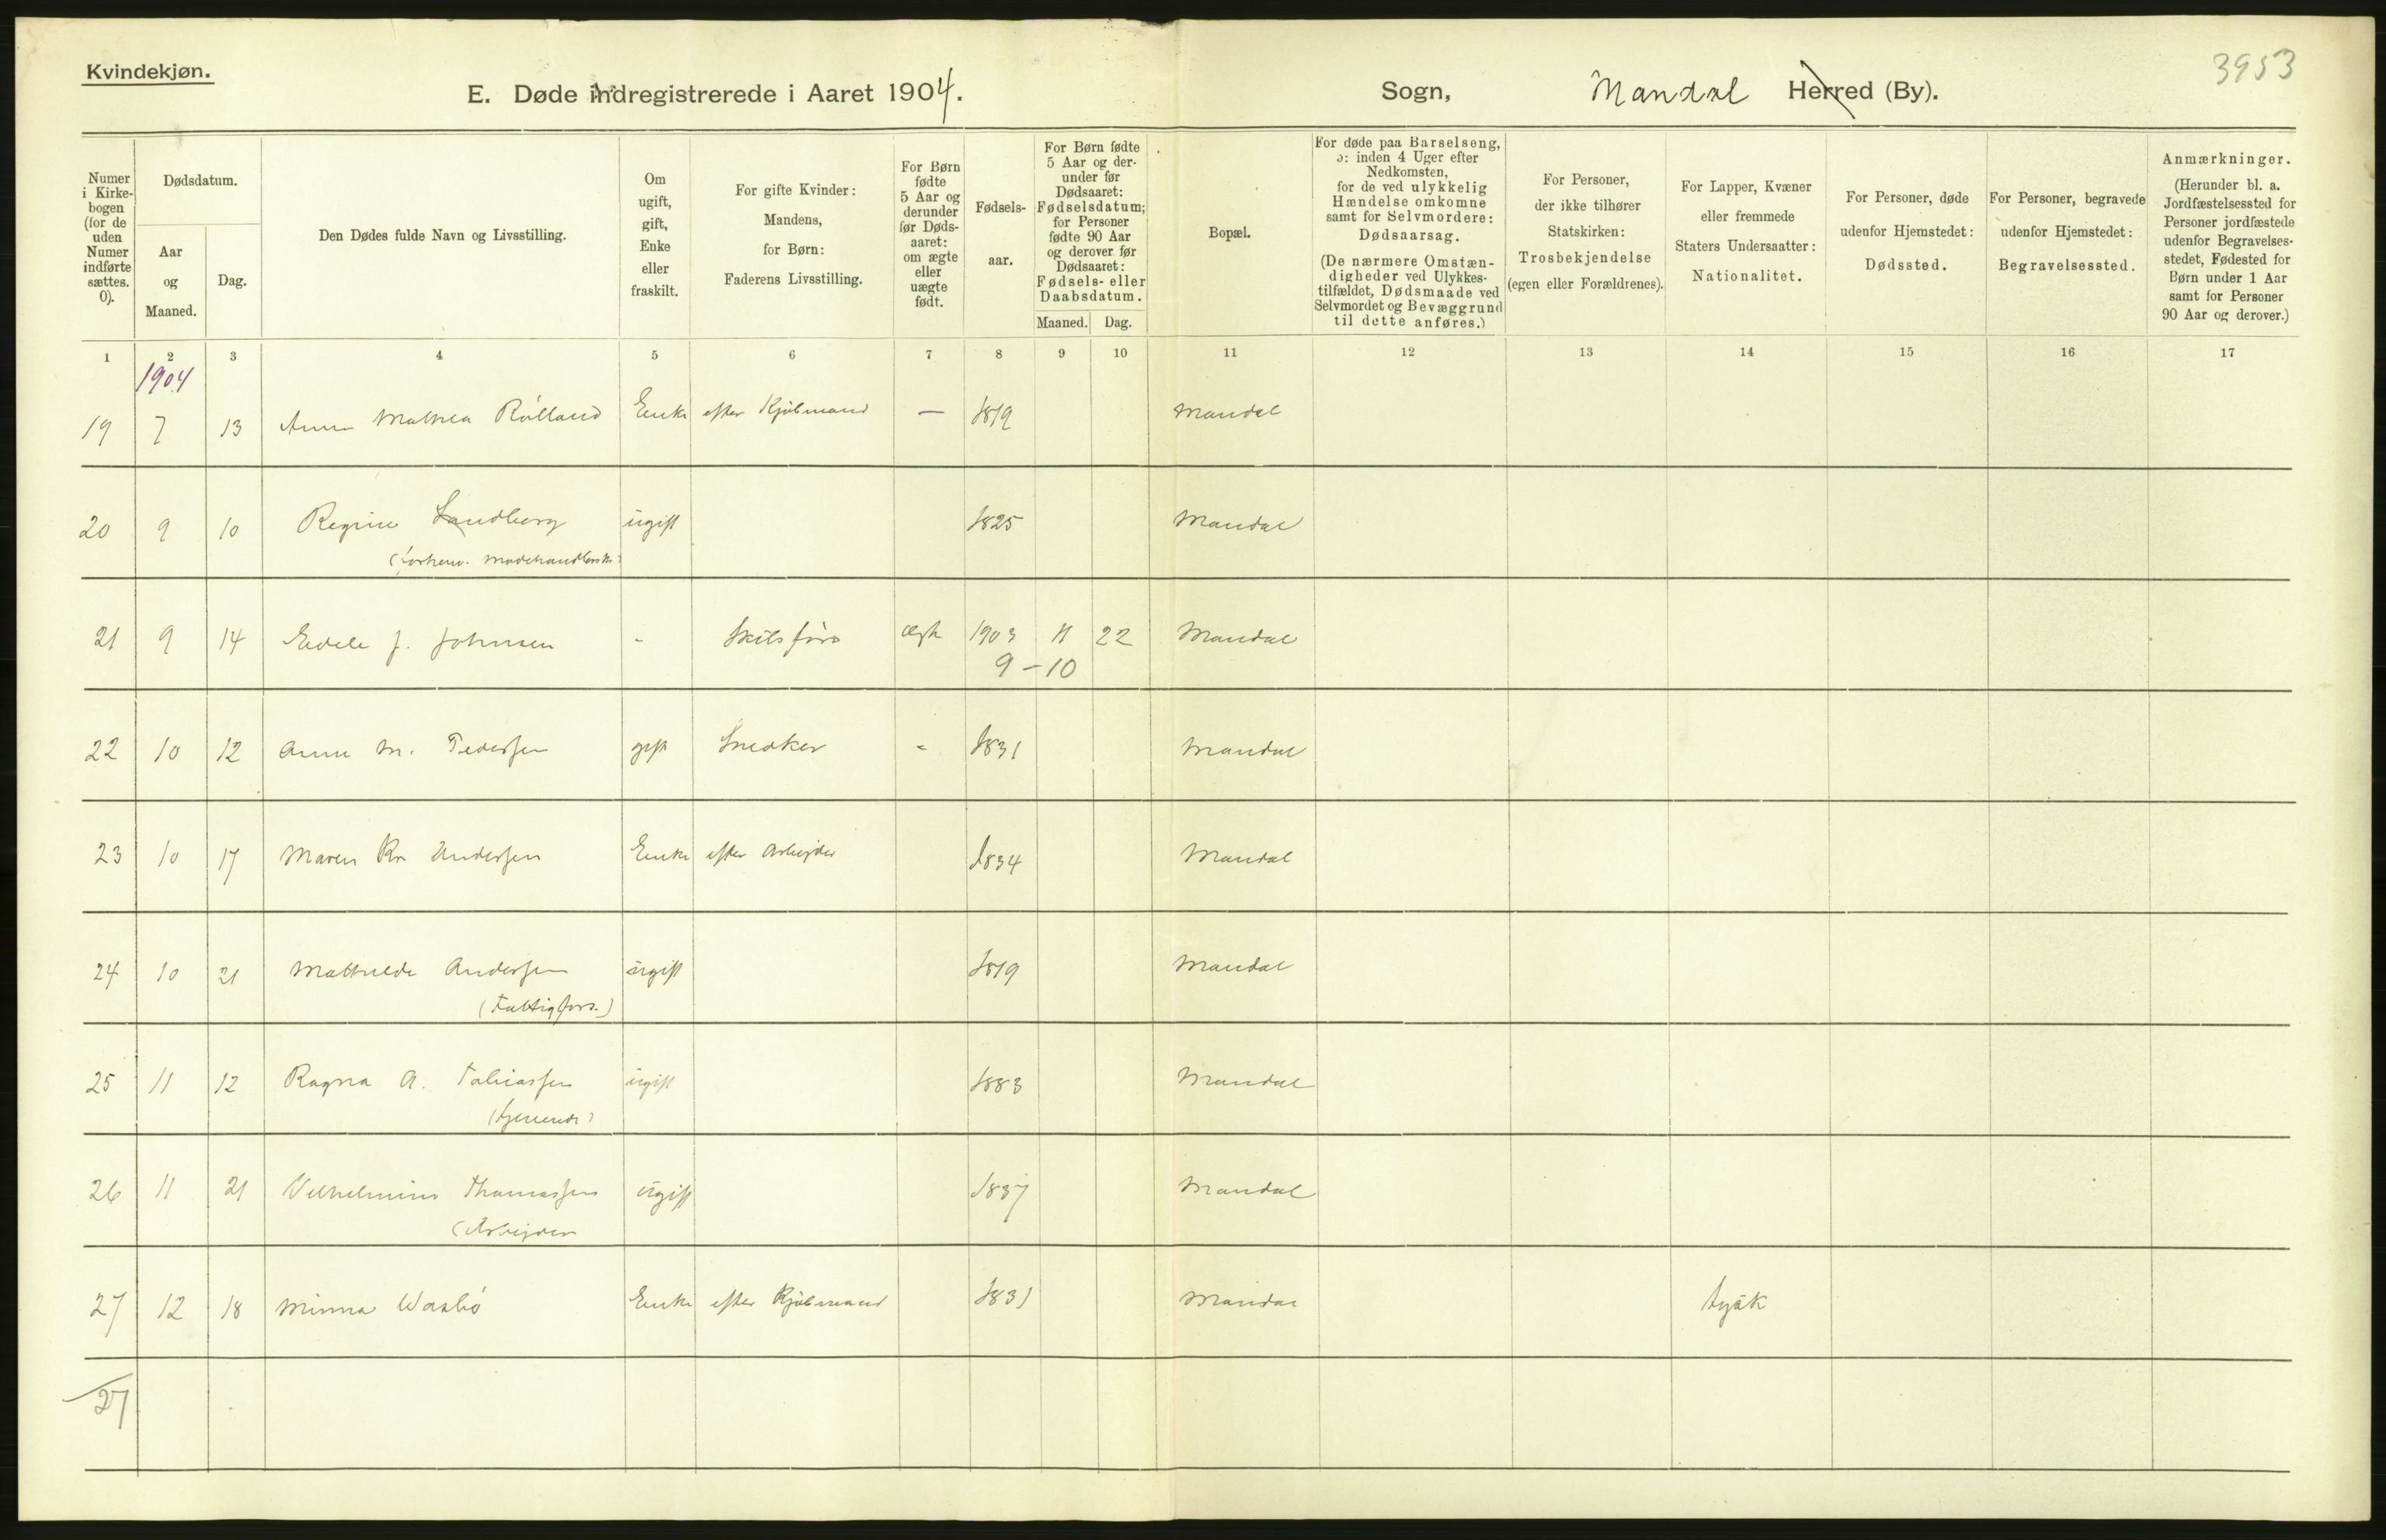 Kvindekjøn.
3953
E. Døde indregistrerede i Aaret 1904. Sogn, Mandal Herred (By).
Numer i Kirkebogen (for de uden Numer indførte sættes. 0).
Dødsdatum.
Aar og Maaned.
Dag.
Den Dødes fulde Navn og Livsstilling.
Om ugift, gift, Enke eller fraskilt.
For gifte Kvinder: Mandens, for Børn: Faderens Livsstilling.
For Børn fødte 5 Aar og derunder før Dødsaaret: om ægte eller uægte født.
Fødselsaar.
For Børn fødte 5 Aar og derunder før Dødsaaret: Fødselsdatum; for Personer fødte 90 Aar og derover før Dødsaaret: Fødsels- eller Daabsdatum.
Maaned. Dag.
Bopæl.
For døde paa Barselseng, ɔ: inden 4 Uger efter Nedkomsten, for de ved ulykkelig Hændelse omkomne samt for Selvmordere: Dødsaarsag.
(De nærmere Omstændigheder ved Ulykkestilfældet, Dødsmaade ved Selvmordet og Bevæggrund til dette anføres.)
For Personer, der ikke tilhører Statskirken: Trosbekjendelse (egen eller Forældrenes).
For Lapper, Kvæner eller fremmede Staters Undersaatter: Nationalitet.
For Personer, døde udenfor Hjemstedet: Dødssted.
For Personer, begravede udenfor Hjemstedet: Begravelsessted.
Anmærkninger.
(Herunder bl. a. Jordfæstelsessted for Personer jordfæstede udenfor Begravelsesstedet, Fødested for Børn under 1 Aar samt for Personer 90 Aar og derover.)
1 2 3 4 5 6 7 8 9 10 11 12 13 14 15 16 17
1904
19 7 13 Anna Mathea Rölland Enke efter Kjøbmand — 1819 Mandal
20 9 10 Regine Sandberg ugift 1825 Mandal
(forhenv. Modehandlerske)
21 9 14 Edele J. Johnsen - Skibsfører ægte 1903 11 22 Mandal
9 – 10
22 10 12 Anne M. Pedersen gift Snedker - 1831 Mandal
23 10 17 Maren Kr. Andersen Enke efter Arbejder 1834 Mandal
24 10 21 Mathilde Andersen ugift 1819 Mandal
(Fattigfors.)
25 11 12 Ragna A. Tobiassen ugift 1883 Mandal
(tjenende)
26 11 21 Vilhelmine Thomassen ugift 1837 Mandal
(Arbejder
27 12 18 Minna Waxbö Enke efter Kjøbmand 1831 Mandal tysk
27